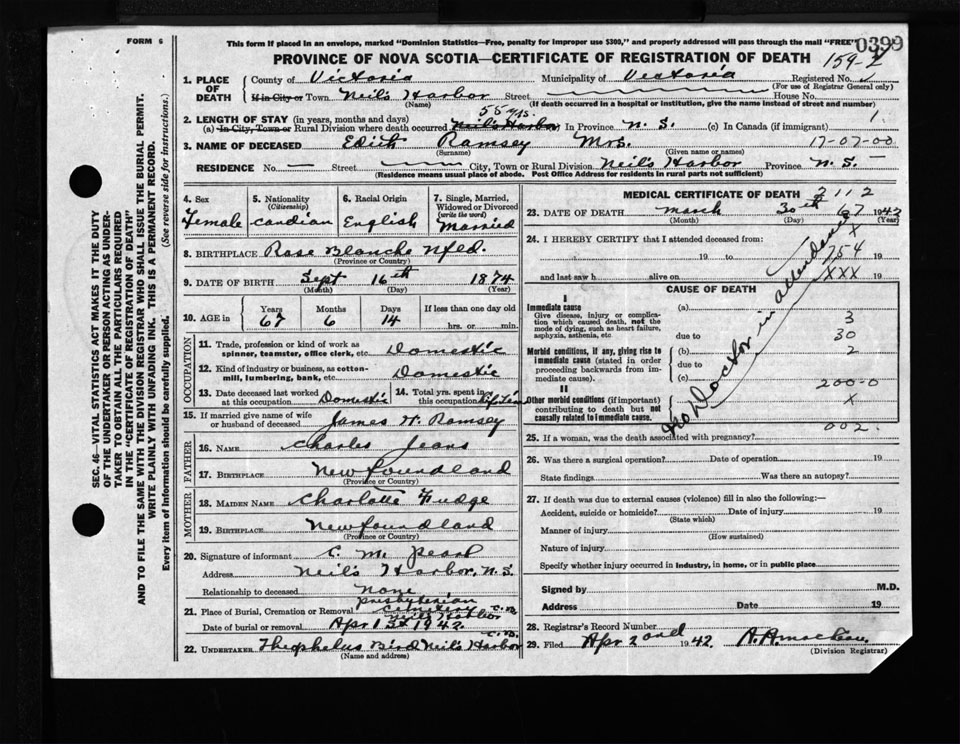 FORM 6
This form if placed in an envelope, marked "Dominion Statistics—Free, penalty for improper use $300," and properly addressed will pass through the mail "FREE"
0399
PROVINCE OF NOVA SCOTIA—CERTIFICATE OF REGISTRATION OF DEATH
159-2
1. PLACE OF DEATH
County of Victoria Municipality of Victoria Registered No.
(For use of Registrar General only)
If in City or Town Neil's Harbor Street House No.
(Name) (If death occurred in a hospital or institution, give the name instead of street and number)
2. LENGTH OF STAY (in years, months and days) 55 yrs.
(a) In City, Town or Rural Division where death occurred Neil's Harbor In Province N. S. (c) In Canada (if immigrant) 1
3. NAME OF DECEASED Edith Ramsey Mrs. 17-07-00
(Surname) (Given name or names)
RESIDENCE No. — Street City, Town or Rural Division Neil's Harbor Province N. S.
(Residence means usual place of abode. Post Office Address for residents in rural parts not sufficient)
4. Sex
Female
5. Nationality
(Citizenship)
candian
6. Racial Origin
English
7. Single, Married, Widowed or Divorced
(write the word)
Married
8. BIRTHPLACE Rose Blanche Nfld.
(Province or Country)
9. DATE OF BIRTH Sept 16th 1874
(Month) (Day) (Year)
10. AGE in Years Months Days If less than one day old
67 6 14 hrs. or min.
OCCUPATION
11. Trade, profession or kind of work as spinner, teamster, office clerk, etc. Domestic
12. Kind of industry or business, as cotton-mill, lumbering, bank, etc. Domestic
13. Date deceased last worked at this occupation Domestic
14. Total yrs. spent in this occupation
15. If married give name of wife or husband of deceased James W. Ramsey
FATHER
16. NAME Charles Jeans
17. BIRTHPLACE Newfoundland
(Province or Country)
MOTHER
18. MAIDEN NAME Charlotte Fudge
19. BIRTHPLACE Newfoundland
(Province or Country)
20. Signature of informant C. M. Pearl
Address Neil's Harbor, N. S.
Relationship to deceased none
21. Place of Burial, Cremation or Removal Presbyterian Cemetery Neil's Harbor
Date of burial or removal Apr 1st 1942
22. UNDERTAKER Theophelus Bird Neil's Harbor
(Name and address)
MEDICAL CERTIFICATE OF DEATH
2112
23. DATE OF DEATH March 30th 67 1942
(Month) (Day) (Year)
24. I HEREBY CERTIFY that I attended deceased from: X
19 to 254 19
and last saw h alive on XXX 19
No Doctor in attendance
CAUSE OF DEATH
I
Immediate cause (a)
Give disease, injury or complication which caused death, not the mode of dying, such as heart failure, asphyxia, asthenia, etc due to
3
30
Morbid conditions, if any, giving rise to immediate cause (stated in order proceeding backwards from immediate cause). (b) due to (c)
2
II
200-0
Other morbid conditions (if important) contributing to death but not causally related to immediate cause.
X
002
25. If a woman, was the death associated with pregnancy?
26. Was there a surgical operation? Date of operation 19
State findings Was there an autopsy?
27. If death was due to external causes (violence) fill in also the following:—
Accident, suicide or homicide? Date of injury 19
(State which)
Manner of injury
(How sustained)
Nature of injury
Specify whether injury occurred in industry, in home, or in public place
Signed by M.D.
Address Date 19
28. Registrar's Record Number
29. Filed Apr 2ond 1942
(Division Registrar)
SEC. 46—VITAL STATISTICS ACT MAKES IT THE DUTY
OF THE UNDERTAKER OR PERSON ACTING AS UNDERTAKER TO OBTAIN ALL THE PARTICULARS REQUIRED
IN THE "CERTIFICATE OF REGISTRATION OF DEATH"
AND TO FILE THE SAME WITH THE DIVISION REGISTRAR WHO SHALL ISSUE THE BURIAL PERMIT.
WRITE PLAINLY WITH UNFADING INK. THIS IS A PERMANENT RECORD.
Every item of information should be carefully supplied. (See reverse side for instructions).